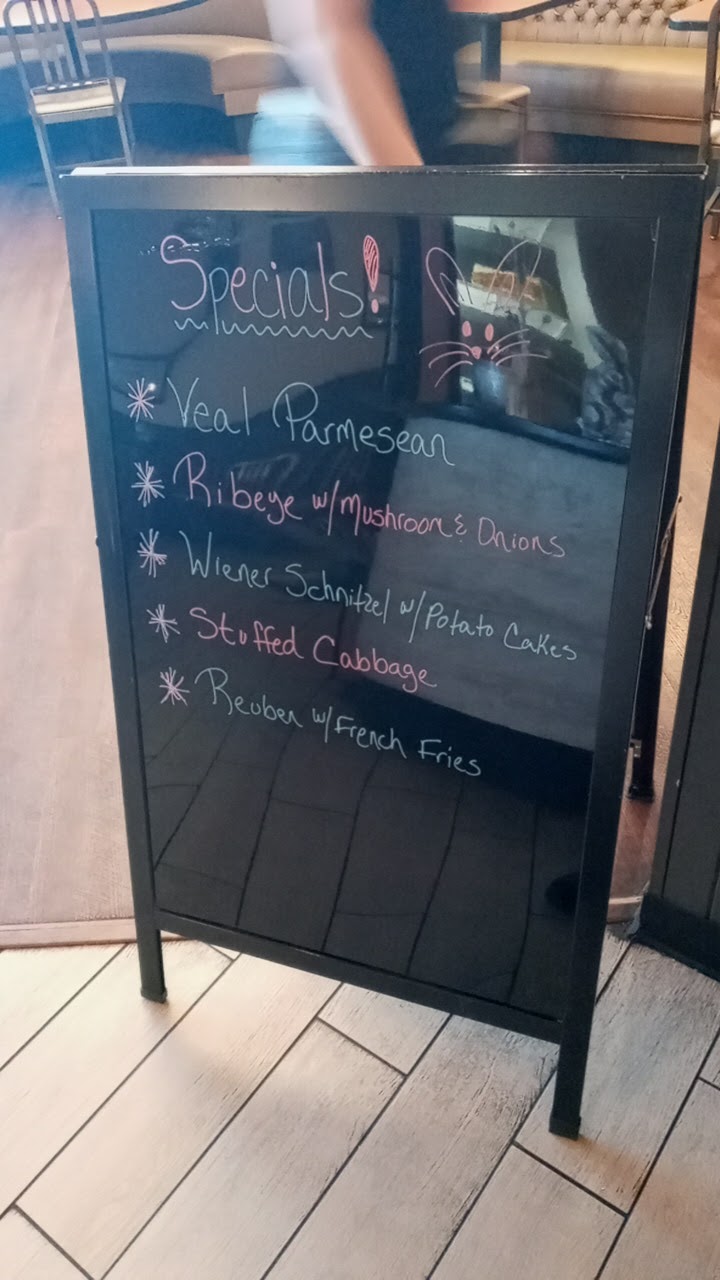 Specials!
* Veal Parmesean
* Ribeye w/Mushroom & Onions
* Wiener Schnitzel w/Potato Cakes
* Stuffed Cabbage
* Reuben w/French Fries